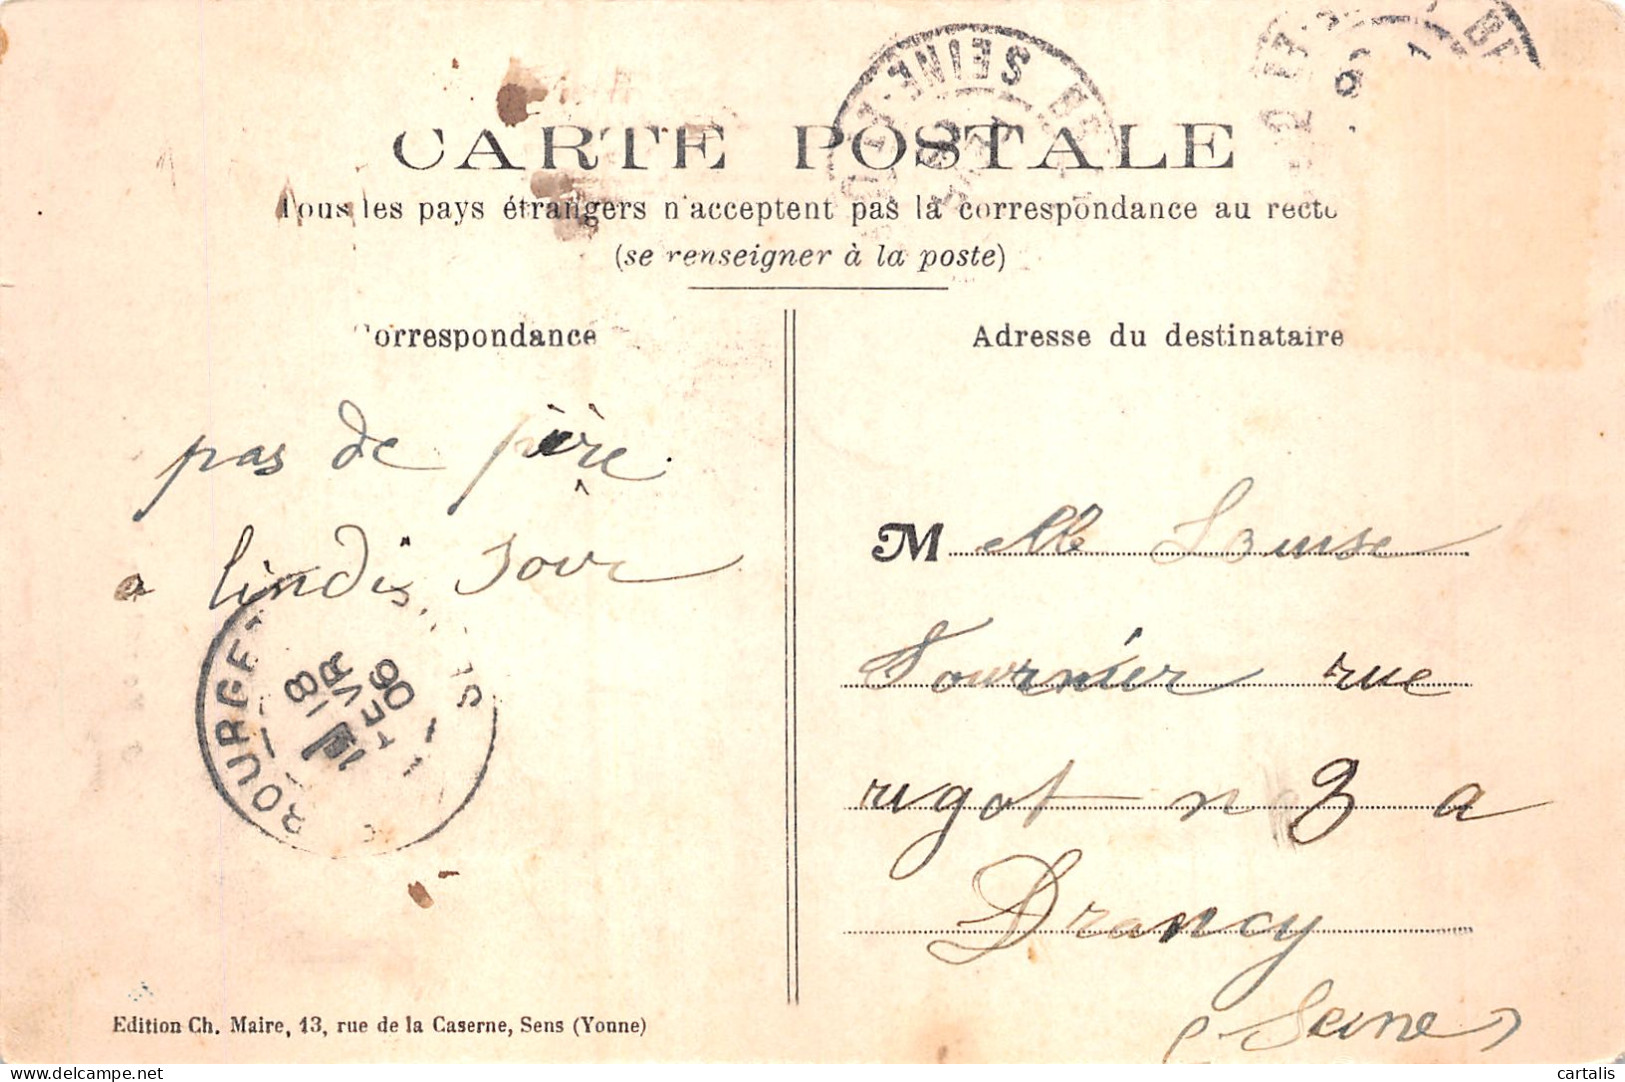 CARTE POSTALE
Tous les pays étrangers n'acceptent pas la correspondance au recto
(se renseigner à la poste)
Correspondance
Adresse du destinataire
pas de père
a lindis jour
M elle Louise
Fournier rue
rigot n 3 a
Drancy
(Seine)
BOURGET
18
FEVR
06
SEINE
DE
Edition Ch. Maire, 13, rue de la Caserne, Sens (Yonne)
cartalis
delcampe.net